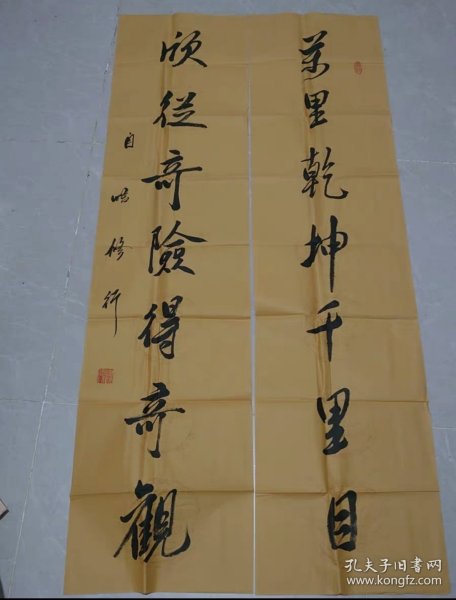 萬里乾坤千里目
欣從奇險得奇觀
自晧修行
孔夫子旧书网
www.kongfz.com